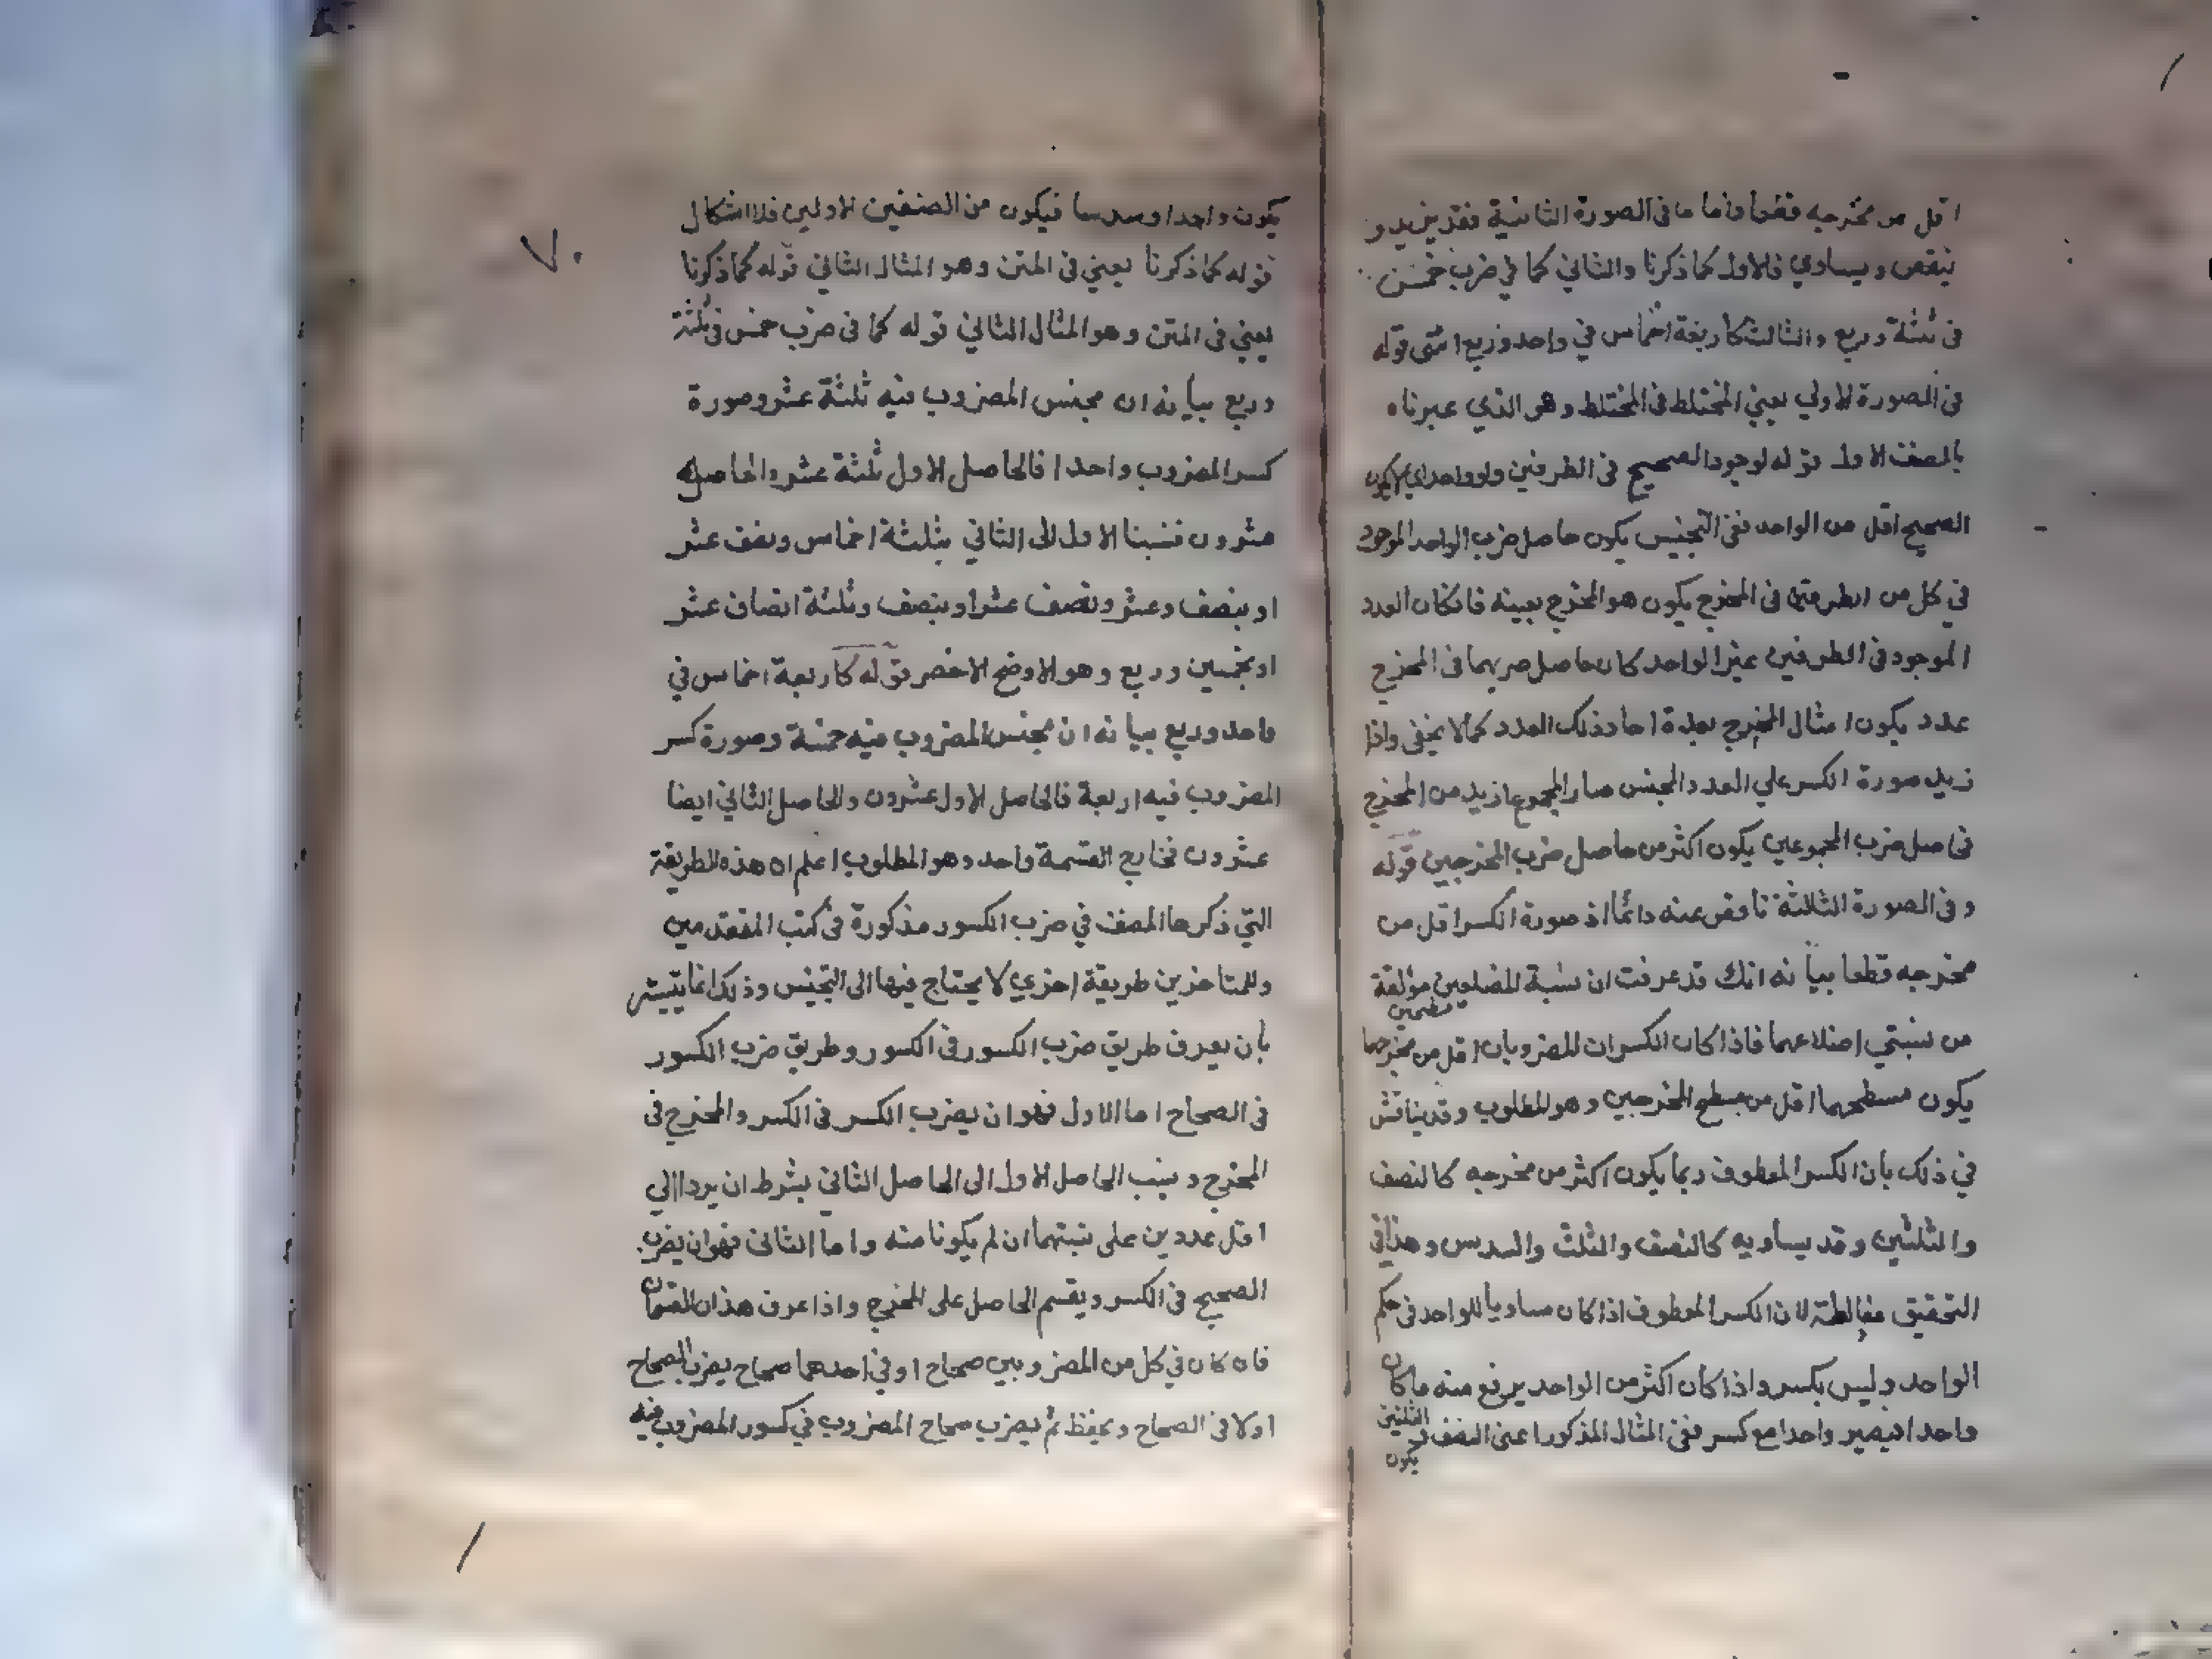 اقل من مخرجه قطعا واما ما فى الصورة الثانية فقد يزيد و
ينقص ويساوي فالاول كما ذكرنا والثاني كما في ضرب خمس
فى ثلثة وربع والثالث كاربعة اخماس في واحد وربع انتهى قوله
فى الصورة الاولي يعني المختلط فى المختلط وهو الذي عبرناه
بالصنف الاول قوله لوجود الصحيح فى الطرفين ولو واحدا اي لا يكون
الصحيح اقل من الواحد ففى التجنيس يكون حاصل ضرب الواحد الموجود
في كل من الطرفين فى المخرج يكون هو المخرج بعينه فان كان العدد
الموجود فى الطرفين غير الواحد كان حاصل ضربهما فى المخرج
عدد يكون امثال المخرج بعدة احاد ذلك العدد كما لا يخفى واذا
زيد صورة الكسر علي العدد المجنس صار المجموع ازيد من المخرج
فحاصل ضرب المجموعين يكون اكثر من حاصل ضرب المخرجين قوله
وفى الصورة الثالثة ناقص عنه دائما اذ صورة الكسر اقل من
مخرجه قطعا بيانه انك قد عرفت ان نسبة المضلعين مؤلفة
مسطحين
من نسبتي اضلاعهما فاذا كان الكسران المضروبان اقل من مخرجهما
يكون مسطحهما اقل من مسطح المخرجين وهو المطلوب وقد يناقش
في ذلك بان الكسر المعطوف ربما يكون اكثر من مخرجه كالنصف
والثلثين وقد يساويه كالنصف والثلث والسدس وهذا فى
التحقيق مغالطة لان الكسر المعطوف اذا كان مساويا للواحد فى حكم
الواحد وليس بكسر واذا كان اكثر من الواحد يرفع منه ما كان
واحدا فيصير واحدا مع كسر ففى المثال المذكور اعنى النصف والثلثين
يكون
٧٠
يكون واحدا وسدسا فيكون من الصنفين الاولين فلا اشكال
قوله كما ذكرنا يعني فى المتن وهو المثال الثاني قوله كما ذكرنا
يعني فى المتن وهو المثال الثاني قوله كما فى ضرب خمس فى ثلثة
وربع بيانه ان مجنس المضروب فيه ثلثة عشر وصورة
كسر المضروب واحدا فالحاصل الاول ثلثة عشر والحاصل
عشرون فنسبنا الاول الى الثاني بثلثة اخماس ونصف عشر
او بنصف وعشر ونصف عشر او بنصف وثلثة انصاف عشر
او بخمسين وربع وهو الاوضح الاخصر قوله كاربعة اخماس في
واحد وربع بيانه ان مجنس المضروب فيه خمسة وصورة كسر
المضروب فيه اربعة فالحاصل الاول عشرون والحاصل الثاني ايضا
عشرون فخارج القسمة واحد وهو المطلوب اعلم ان هذه الطريقة
التي ذكرها المصنف في ضرب الكسور مذكورة فى كتب المتقدمين
وللمتاخرين طريقة اخري لا يحتاج فيها الى التجنيس وذلك انما يتيسر
بان يعرف طريق ضرب الكسور فى الكسور وطريق ضرب الكسور
فى الصحاح اما الاول فهو ان يضرب الكسر فى الكسر والمخرج فى
المخرج وينسب الحاصل الاول الى الحاصل الثاني بشرط ان يردا الي
اقل عددين على نسبتهما ان لم يكونا منه واما الثانى فهو ان يضرب
الصحيح فى الكسر ويقسم الحاصل على المخرج واذا عرف هذان القسمان
فان كان في كل من المضروبين صحاح او في احدهما صحاح يضرب الصحاح
اولا فى الصحاح ويحفظ ثم يضرب صحاح المضروب في كسور المضروب فيه